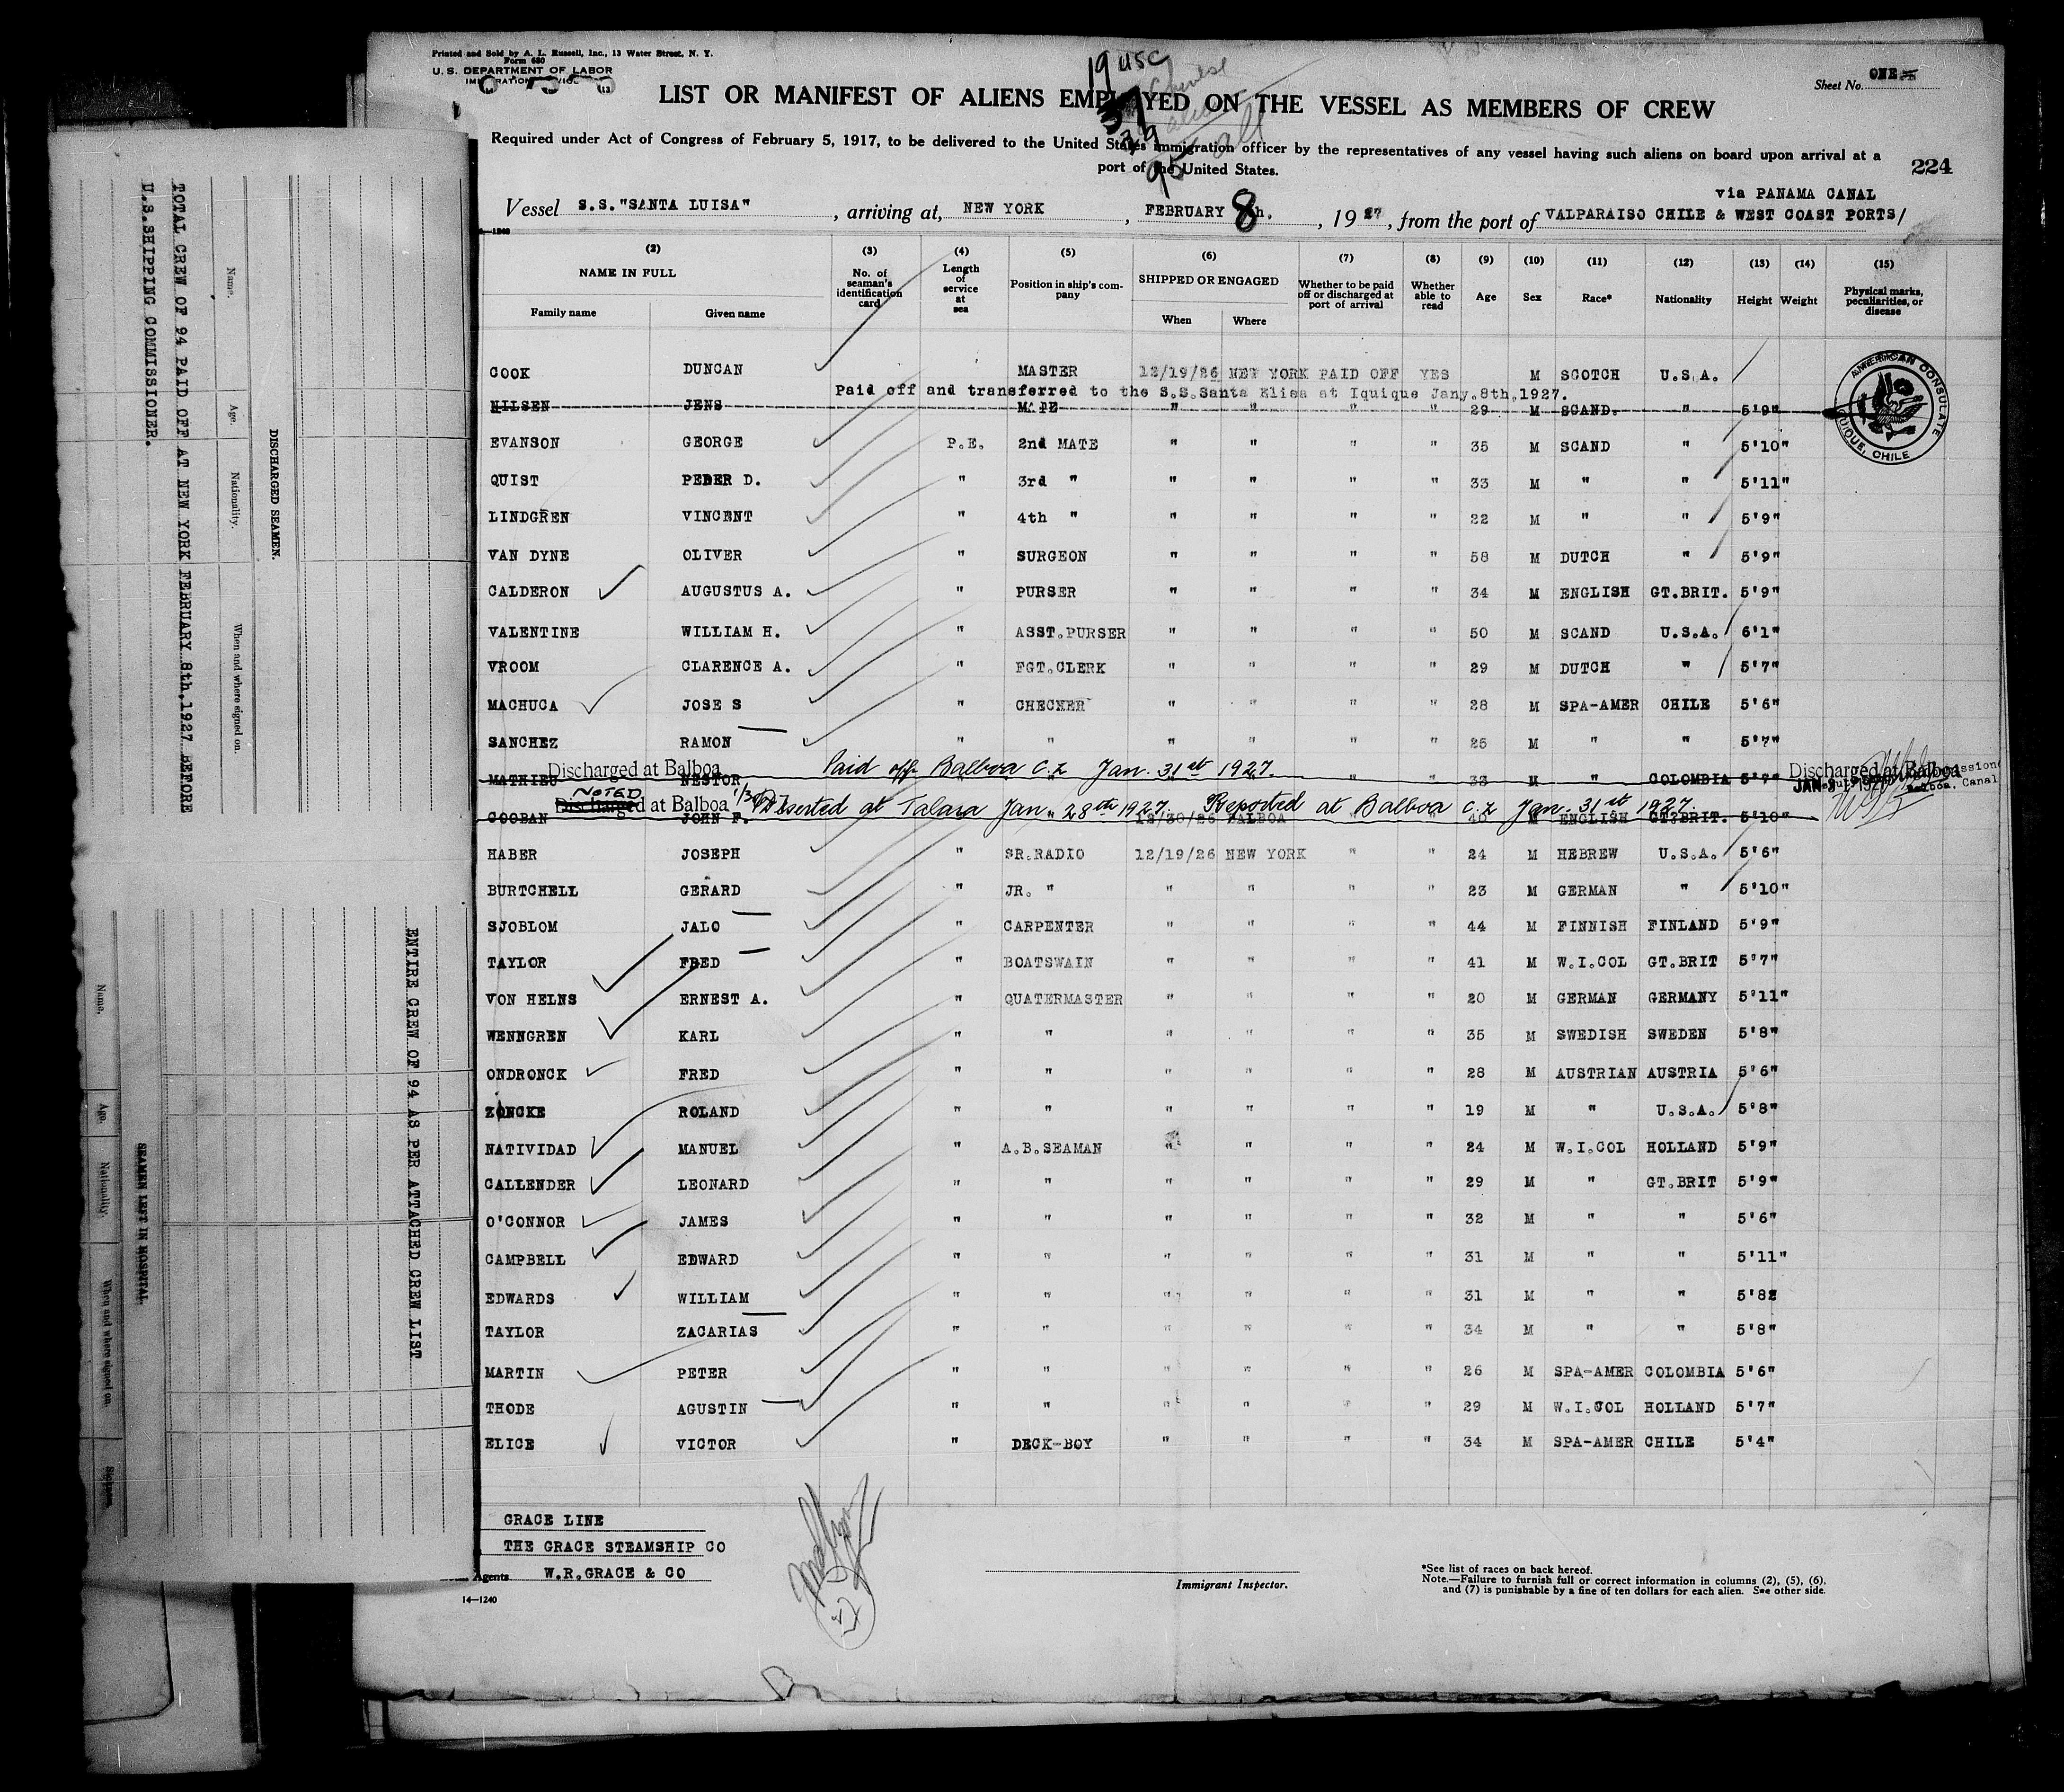 Printed and Sold by A. L. Russell, Inc., 13 Water Street, N. Y.
Form 680
U. S. DEPARTMENT OF LABOR
Sheet No. ONE
19 USC
LIST OR MANIFEST OF ALIENS EMPLOYED ON THE VESSEL AS MEMBERS OF CREW
Required under Act of Congress of February 5, 1917, to be delivered to the United States immigration officer by the representatives of any vessel having such aliens on board upon arrival at a
port of the United States.
95 all
224
via PANAMA CANAL
Vessel S.S."SANTA LUISA" , arriving at, NEW YORK , FEBRUARY 8th. , 1927 , from the port of VALPARAISO CHILE & WEST COAST PORTS/
(2) (3) (4) (5) (6) (7) (8) (9) (10) (11) (12) (13) (14) (15)
NAME IN FULL No. of seaman's identification card Length of service at sea Position in ship's company SHIPPED OR ENGAGED Whether to be paid off or discharged at port of arrival Whether able to read Age Sex Race* Nationality Height Weight Physical marks, peculiarities, or disease
Family name Given name When Where
COOK DUNCAN MASTER 12/19/26 NEW YORK PAID OFF YES M SCOTCH U.S.A.
Paid off and transferred to the S.S.Santa Elisa at Iquique Jany.8th,1927.
NILSEN JENS MATE " " " " 29 M SCAND. " 5'9"
EVANSON GEORGE P.E. 2nd MATE " " " " 35 M SCAND " 5'10"
QUIST PEDER D. " 3rd " " " " " 33 M " " 5'11"
LINDGREN VINCENT " 4th " " " " " 22 M " " 5'9"
VAN DYNE OLIVER " SURGEON " " " " 58 M DUTCH " 5'9"
CALDERON AUGUSTUS A. " PURSER " " " " 34 M ENGLISH GT.BRIT. 5'9"
VALENTINE WILLIAM H. " ASST.PURSER " " " " 50 M SCAND U.S.A. 6'1"
VROOM CLARENCE A. " FGT.CLERK " " " " 29 M DUTCH " 5'7"
MACHUCA JOSE S " CHECKER " " " " 28 M SPA-AMER CHILE 5'6"
SANCHEZ RAMON " " " " " " 25 M " " 5'7"
Discharged at Balboa Paid off Balboa C.Z Jan. 31st 1927. Discharged at Balboa
MATHIEU NESTOR " " 33 M " COLOMBIA 5'7" JAN 31 1927
NOTED
Discharged at Balboa Deserted at Talara Jan. 28th 1927. Reported at Balboa C.Z Jan. 31st 1927.
COOBAN JOHN F. 12/30/26 BALBOA " " 40 M ENGLISH GT.BRIT. 5'10"
HABER JOSEPH " SR.RADIO 12/19/26 NEW YORK " " 24 M HEBREW U.S.A. 5'6"
BURTCHELL GERARD " JR. " " " " " 23 M GERMAN " 5'10"
SJOBLOM JALO " CARPENTER " " " " 44 M FINNISH FINLAND 5'9"
TAYLOR FRED " BOATSWAIN " " " " 41 M W.I.COL GT.BRIT 5'7"
VON HELNS ERNEST A. " QUATERMASTER " " " " 20 M GERMAN GERMANY 5'11"
WENNGREN KARL " " " " " " 35 M SWEDISH SWEDEN 5'8"
ONDRONCK FRED " " " " " " 28 M AUSTRIAN AUSTRIA 5'6"
ZONCKE ROLAND " " " " " " 19 M " U.S.A. 5'8"
NATIVIDAD MANUEL " A.B.SEAMAN " " " " 24 M W.I.COL HOLLAND 5'9"
CALLENDER LEONARD " " " " " " 29 M " GT.BRIT 5'9"
O'CONNOR JAMES " " " " " " 32 M " " 5'6"
CAMPBELL EDWARD " " " " " " 31 M " " 5'11"
EDWARDS WILLIAM " " " " " " 31 M " " 5'82
TAYLOR ZACARIAS " " " " " " 34 M " " 5'8"
MARTIN PETER " " " " " " 26 M SPA-AMER COLOMBIA 5'6"
THODE AGUSTIN " " " " " " 29 M W.I.COL HOLLAND 5'7"
ELICE VICTOR " DECK-BOY " " " " 34 M SPA-AMER CHILE 5'4"
AMERICAN CONSULATE
IQUIQUE, CHILE
GRACE LINE
THE GRACE STEAMSHIP CO
Agents W.R.GRACE & CO
Immigrant Inspector.
*See list of races on back hereof.
Note.—Failure to furnish full or correct information in columns (2), (5), (6),
and (7) is punishable by a fine of ten dollars for each alien. See other side.
14—1240
DISCHARGED SEAMEN.
Name. Age. Nationality. When and where signed on.
TOTAL CREW OF 94 PAID OFF AT NEW YORK FEBRUARY 8th,1927 BEFORE
U.S.SHIPPING COMMISSIONER.
ENTIRE CREW OF 94 AS PER ATTACHED CREW LIST
SEAMEN LEFT IN HOSPITAL.
Name. Age. Nationality. When and where signed on.